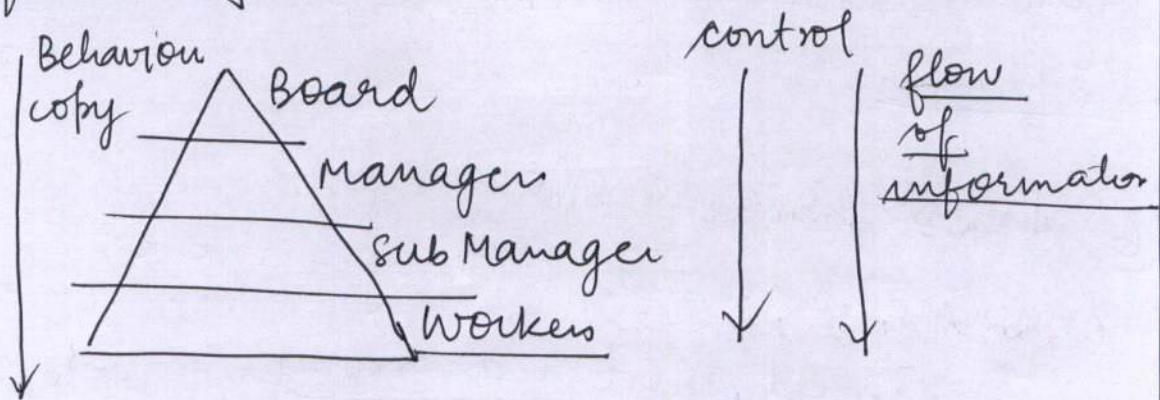 Behaviour
copy
Board
Managers
Sub Manager
Workers
control
flow
of
information